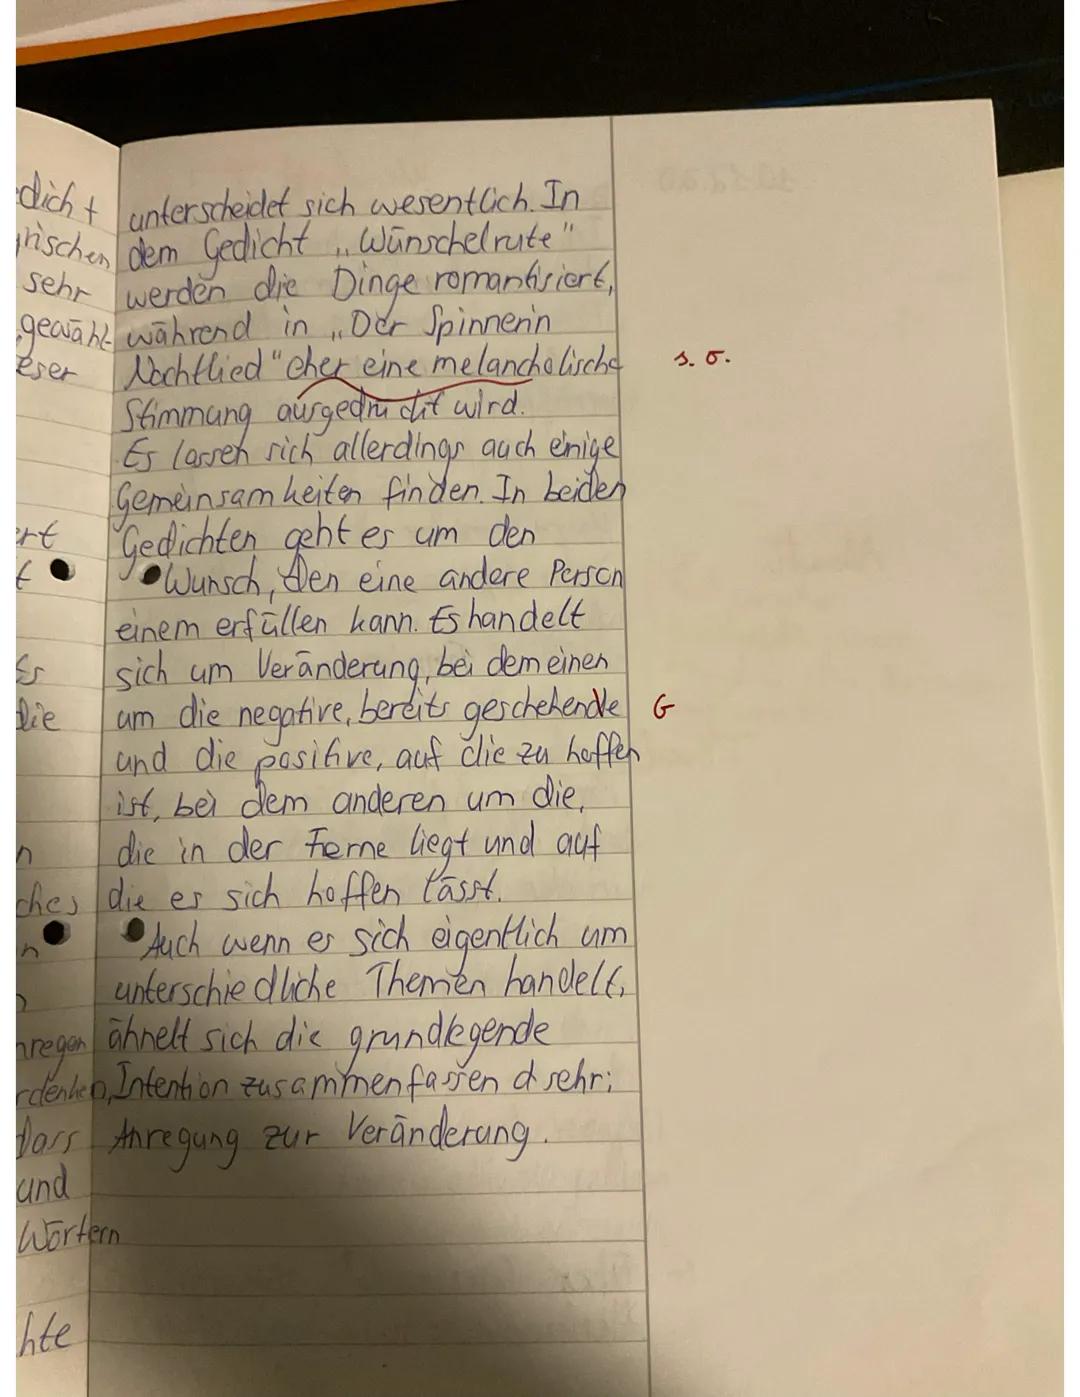 dicht
rischen
sehr
gewähl-
eser
ert
t
Es
die
n
ches
n
nregen
rdenken,
dass
und
Wörtern
hte
unterscheidet sich wesentlich. In
dem Gedicht „Wünschelrute"
werden die Dinge romantisiert,
während in „Der Spinnerin
Nachtlied" eher eine melancholische s. o.
Stimmung ausgedrückt wird.
Es lassen sich allerdings auch einige
Gemeinsamkeiten finden. In beiden
Gedichten geht es um den
Wunsch, den eine andere Person
einem erfüllen kann. Es handelt
sich um Veränderung, bei dem einen
um die negative, bereits geschehende G
und die positive, auf die zu hoffen
ist, bei dem anderen um die,
die in der Ferne liegt und auf
die es sich hoffen lässt.
Auch wenn es sich eigentlich um
unterschiedliche Themen handelt,
ähnelt sich die grundlegende
Intention zusammenfassend sehr:
Anregung zur Veränderung.